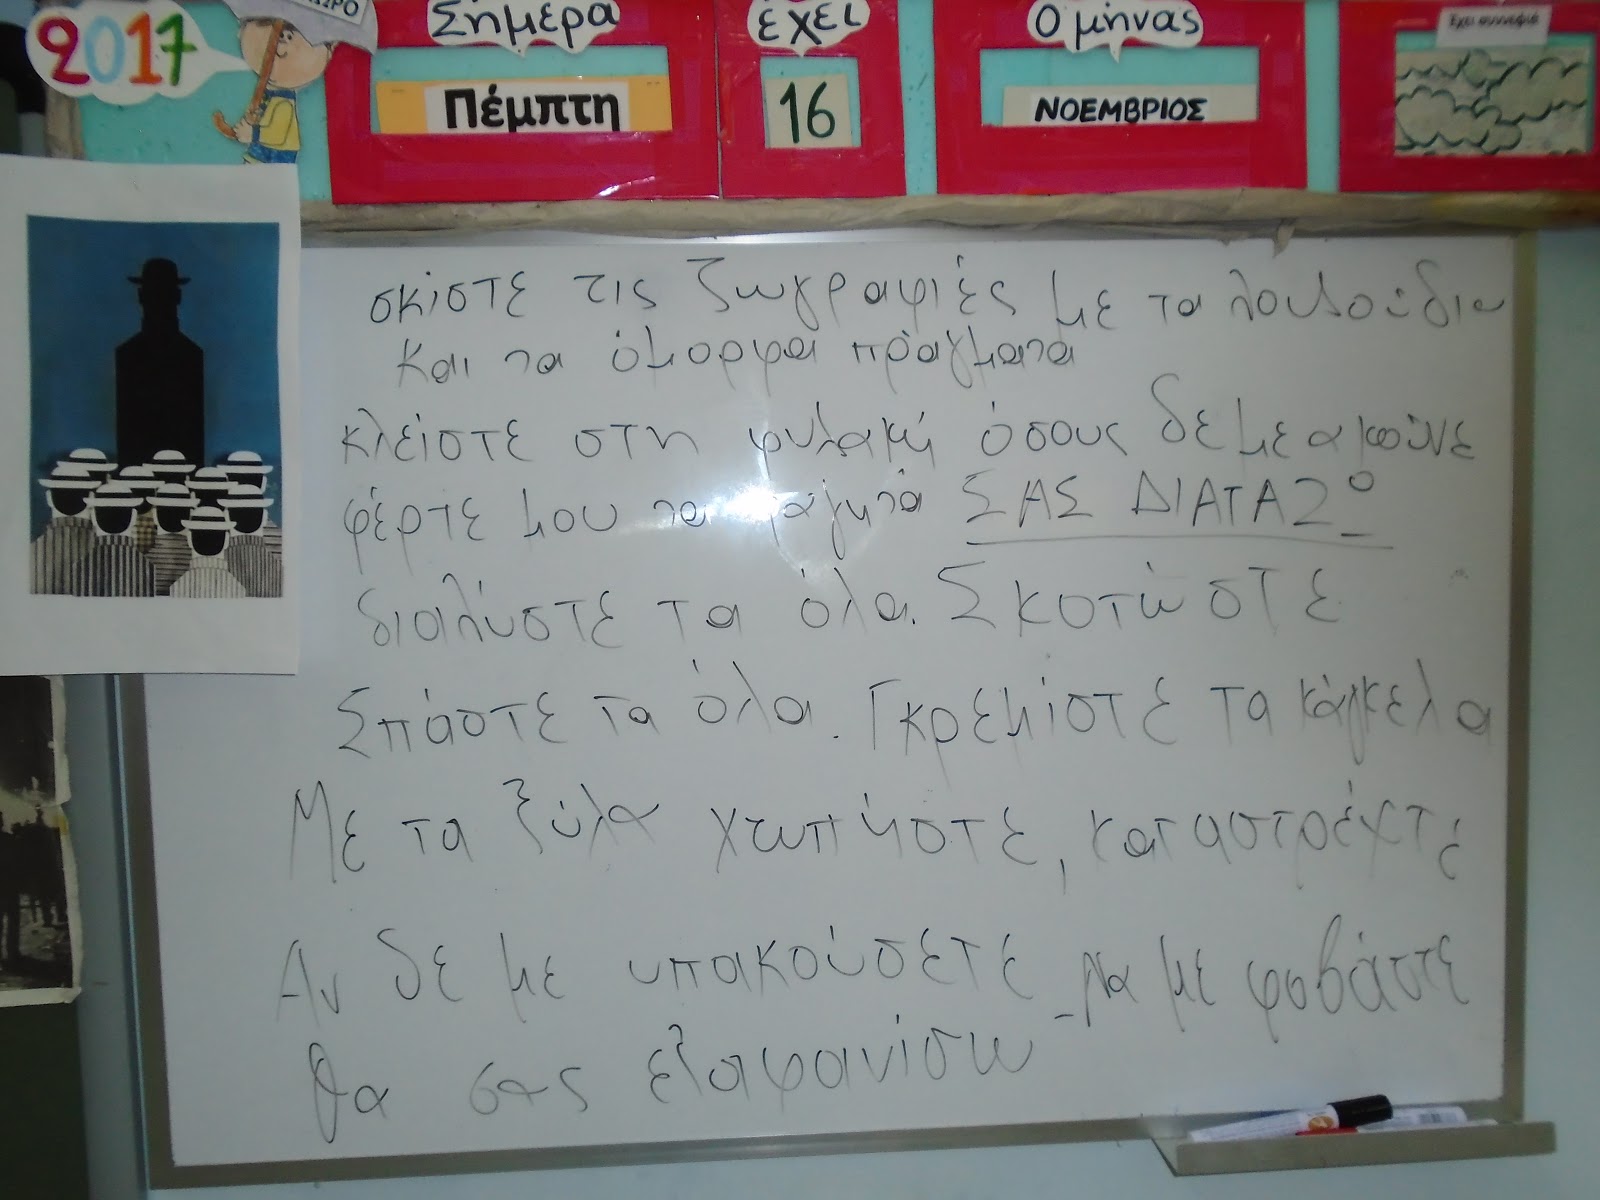 2017
ΩΡΟ
Σήμερα
Πέμπτη
έχει
16
Ο μήνας
ΝΟΕΜΒΡΙΟΣ
Έχει συννεφιά
σκίστε τις ζωγραφιές με τα λουλούδια
και τα όμορφα πράγματα
κλείστε στη φυλακή όσους δε με ακούνε
φέρτε μου τα φαγητά ΣΑΣ ΔΙΑΤΑΖΩ
διαλύστε τα όλα. Σκοτώστε
Σπάστε τα όλα. Γκρεμίστε τα κάγκελα
Με τα ξύλα χτυπήστε, καταστρέψτε
Αν δε με υπακούσετε - Να με φοβάστε
θα σας εξαφανίσω